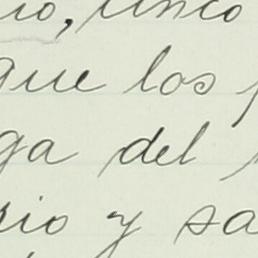 io, cinco
que los p
ga del
rio y sa